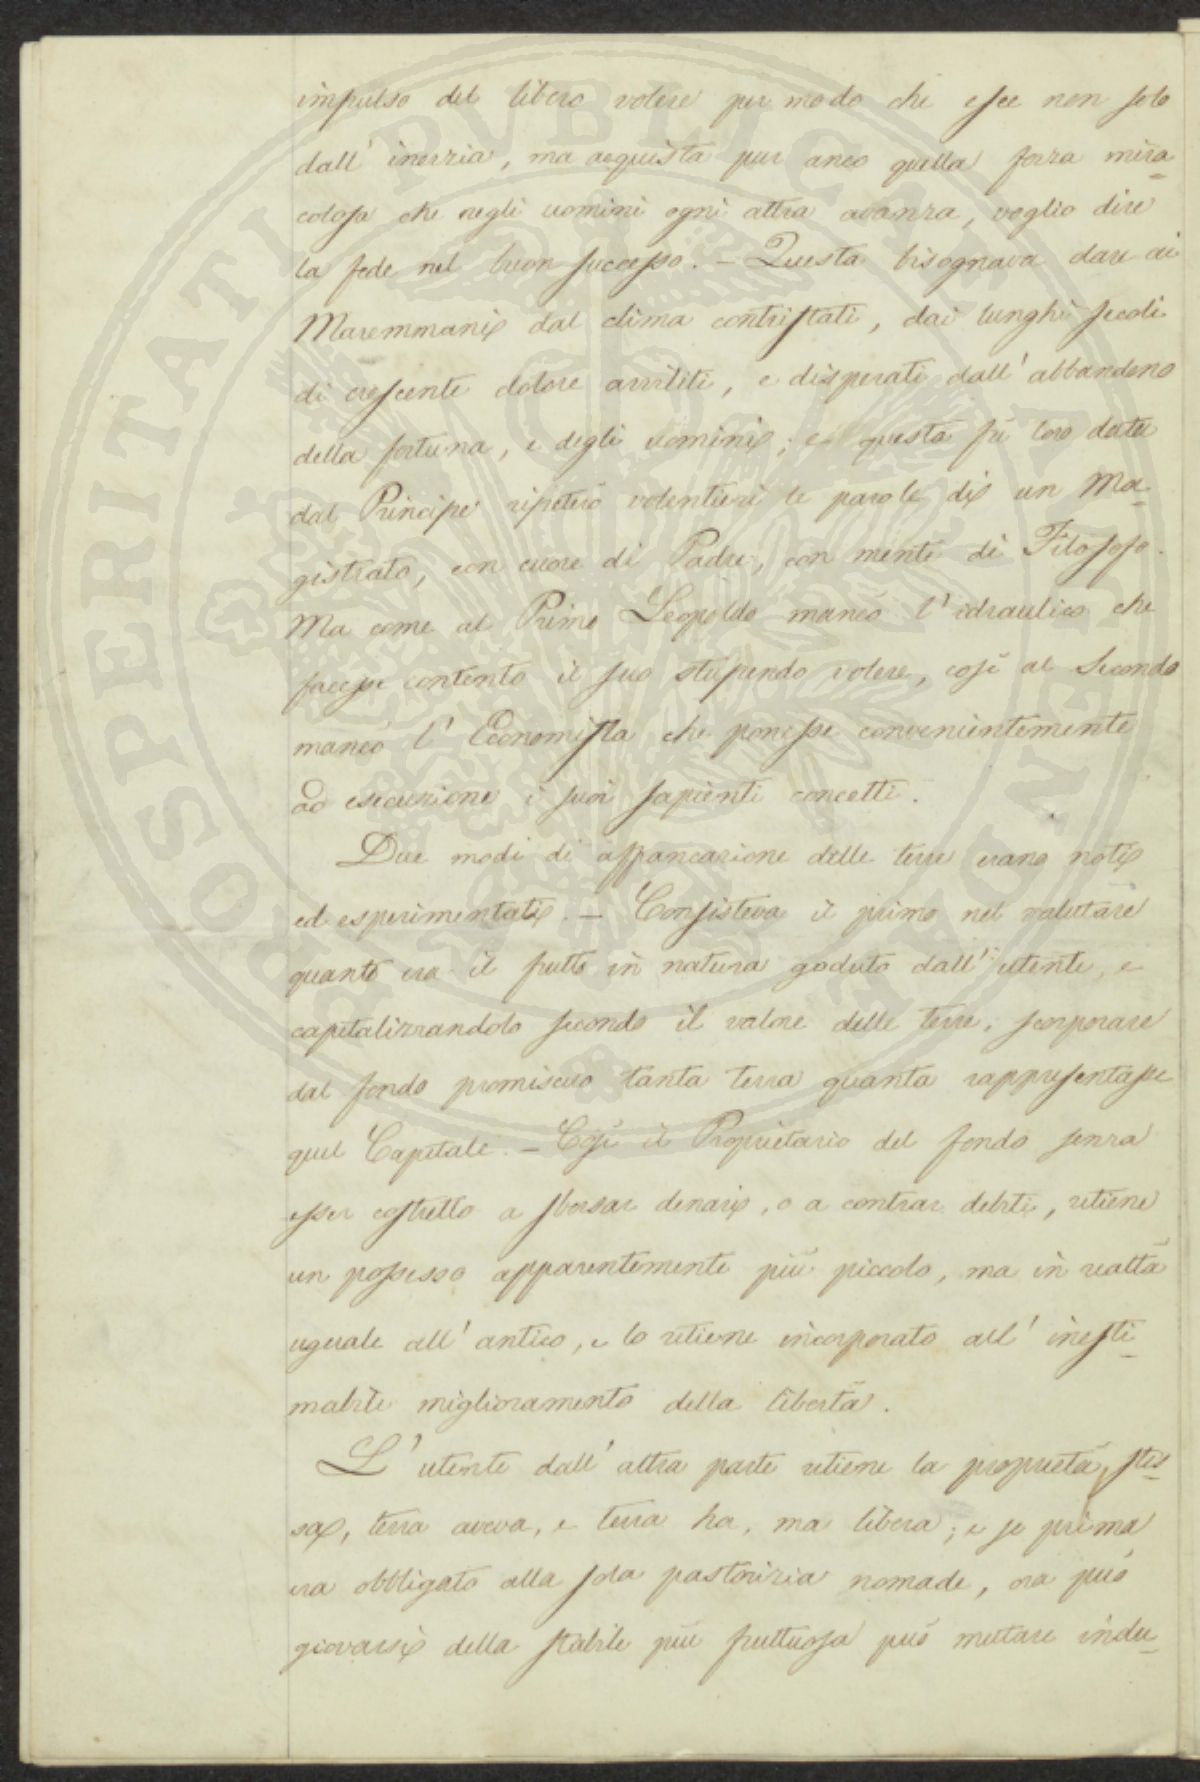 impulso del libero volere per modo che esce non solo
dall' inerzia, ma acquista pur anco quella forza mira-
colosa che negli uomini ogni altra avanza, voglio dire
la fede nel buon successo. – Questa bisognava dare ai
Maremmani dal clima contristati, dai lunghi secoli
di crescente dolore avviliti, e disperati dall' abbandono
della fortuna, e degli uomini; e questa fù loro data
dal Principe ripeterò volentieri le parole di un Ma-
gistrato, con cuore di Padre, con mente di Filosofo.
Ma come al Primo Leopoldo mancò l' idraulico che
facesse contento il suo stupendo volere, così al Secondo
mancò l' Economista che ponesse convenientemente
ad esecuzione i suoi sapienti concetti.
Due modi di affrancazione delle terre erano noti
ed esperimentati. – Consisteva il primo nel valutare
quanto era il frutto in natura goduto dall' utente, e
capitalizzandolo secondo il valore delle terre, scorporare
dal fondo promiscuo tanta terra quanta rappresentasse
quel Capitale. – Così il Proprietario del fondo senza
esser costretto a sborsar denari, o a contrar debiti, ritiene
un possesso apparentemente più piccolo, ma in realtà
uguale all' antico, e lo ritiene incorporato all' inesti-
mabile miglioramento della libertà.
L' utente dall' altra parte ritiene la proprietà stes-
sa, terra aveva, e terra ha, ma libera; e se prima
era obbligato alla sola pastorizia nomade, ora può
giovarsi della stabile più fruttuosa può mutare indu-
PROSPERITATI PVBLICAE AVGENDAE